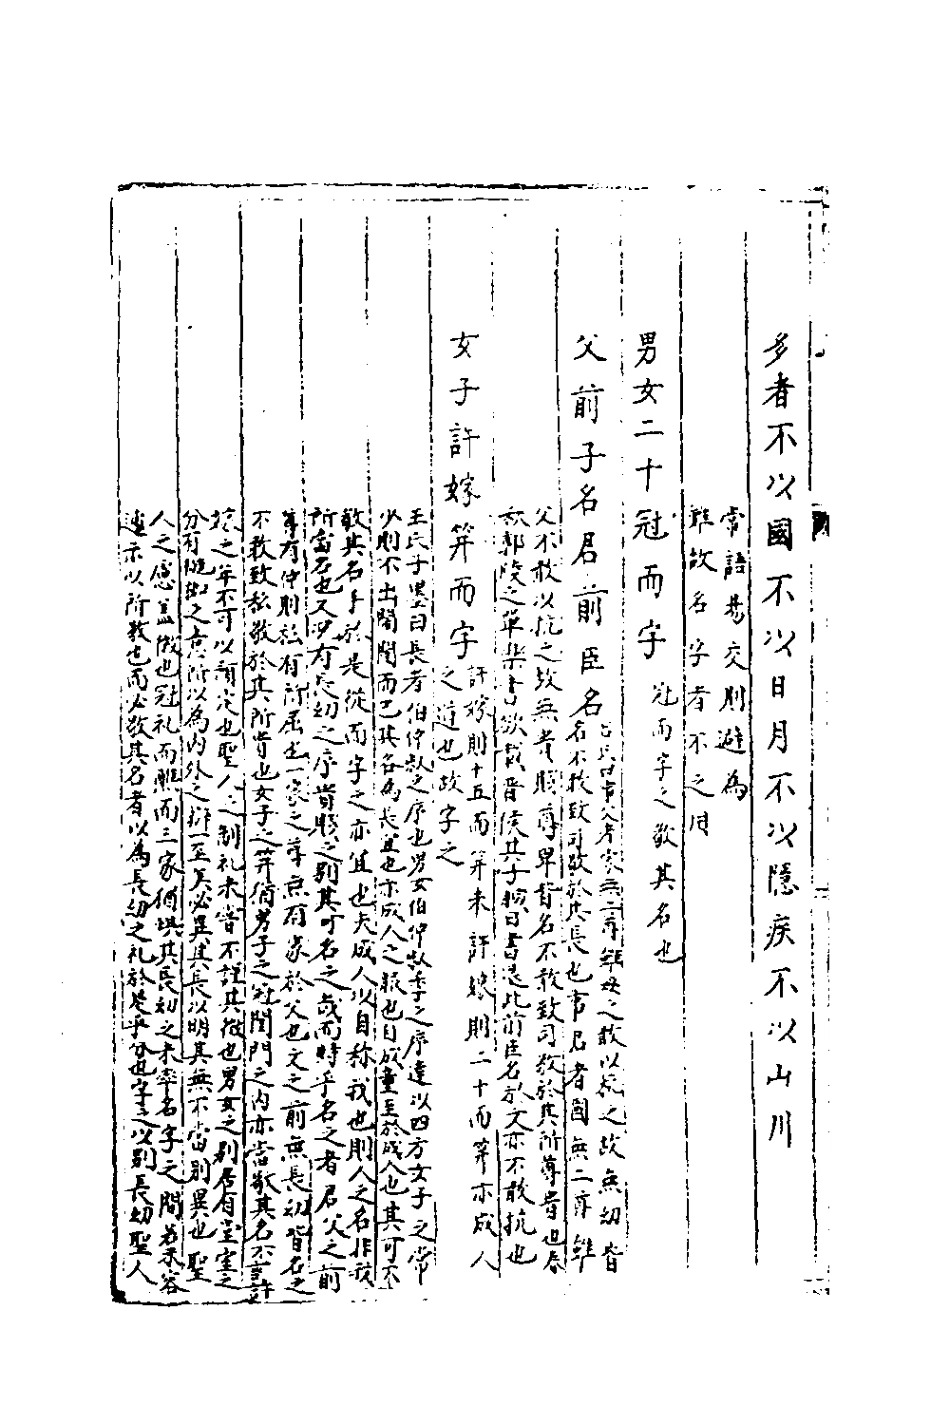 名者不以國不以日月不以隱疾不以山川
常語易交則避為
難故名字者不之用
男女二十冠而字
冠而字之敬其名也
父前子名君前臣名
呂氏曰事父者家無二尊雖母之敢以抗之故無幼皆
名不敢致司敬於其長也事君者國無二尊雖
父不敢以抗之故無貴賤尊卑皆名不敢致司敬於其所尊貴也春
秋鄢陵之欒書欲載晉侯其子鍼曰書退此君前臣名於父亦不敢抗也
女子許嫁笄而字
許嫁則十五而笄未許嫁則二十而笄亦成人
之道也故字之
王氏子墨曰長者伯仲叔之序也男女伯仲叔季之序達以四方女子之常
必則不出閨閫而已其名為長也亦成人之服也自成童至於成人也其可不
敬其名乎於是從而字之亦宜也夫成人以自称我也則人之名非我
所當名也又有長幼之序貴賤之別其可名之哉而時乎名之者君父之前
尊有仲則私有所屈也一家之尊無有家於父也父之前無長幼皆名之
不敢致私敬於其所貴也女子之笄猶男子之冠閨門之內亦當敬其名不言許
嫁之年不可以預定也聖人之制礼未嘗不謹其微也男女之別居有堂室之
分有之意所以為內外之辯一至矣必異其長以明其無不當別異也聖
人之慮蓋微也冠礼而雖而三家猶其長幼之未字名字之間若未容
遽示以所敬也而必敬其名者以為長幼之礼於是乎分也字之以別長幼聖人